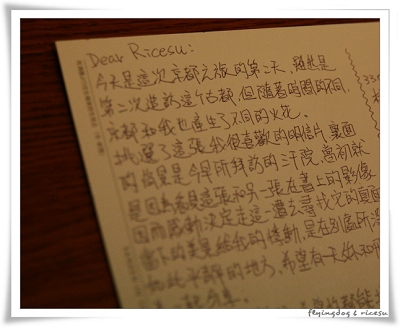 Dear Ricesu:
今天是這次京都之旅的第二天、雖然是
第二次造訪這個古都, 但隨著時間的不同,
京都和我也產生了不同的火花。
挑選了這張我很喜歡的明信片, 裏面
的佈景是今早所拜訪的三千院, 當初就
是因為看見這張和另一張在書上的影像
因而重新決定走這一遭去尋找它的真面
當下的美景給我的悸動, 是在別處所沒
如此平靜的地方, 希望有一天妳和
一起分享。
flyingdog & ricesu